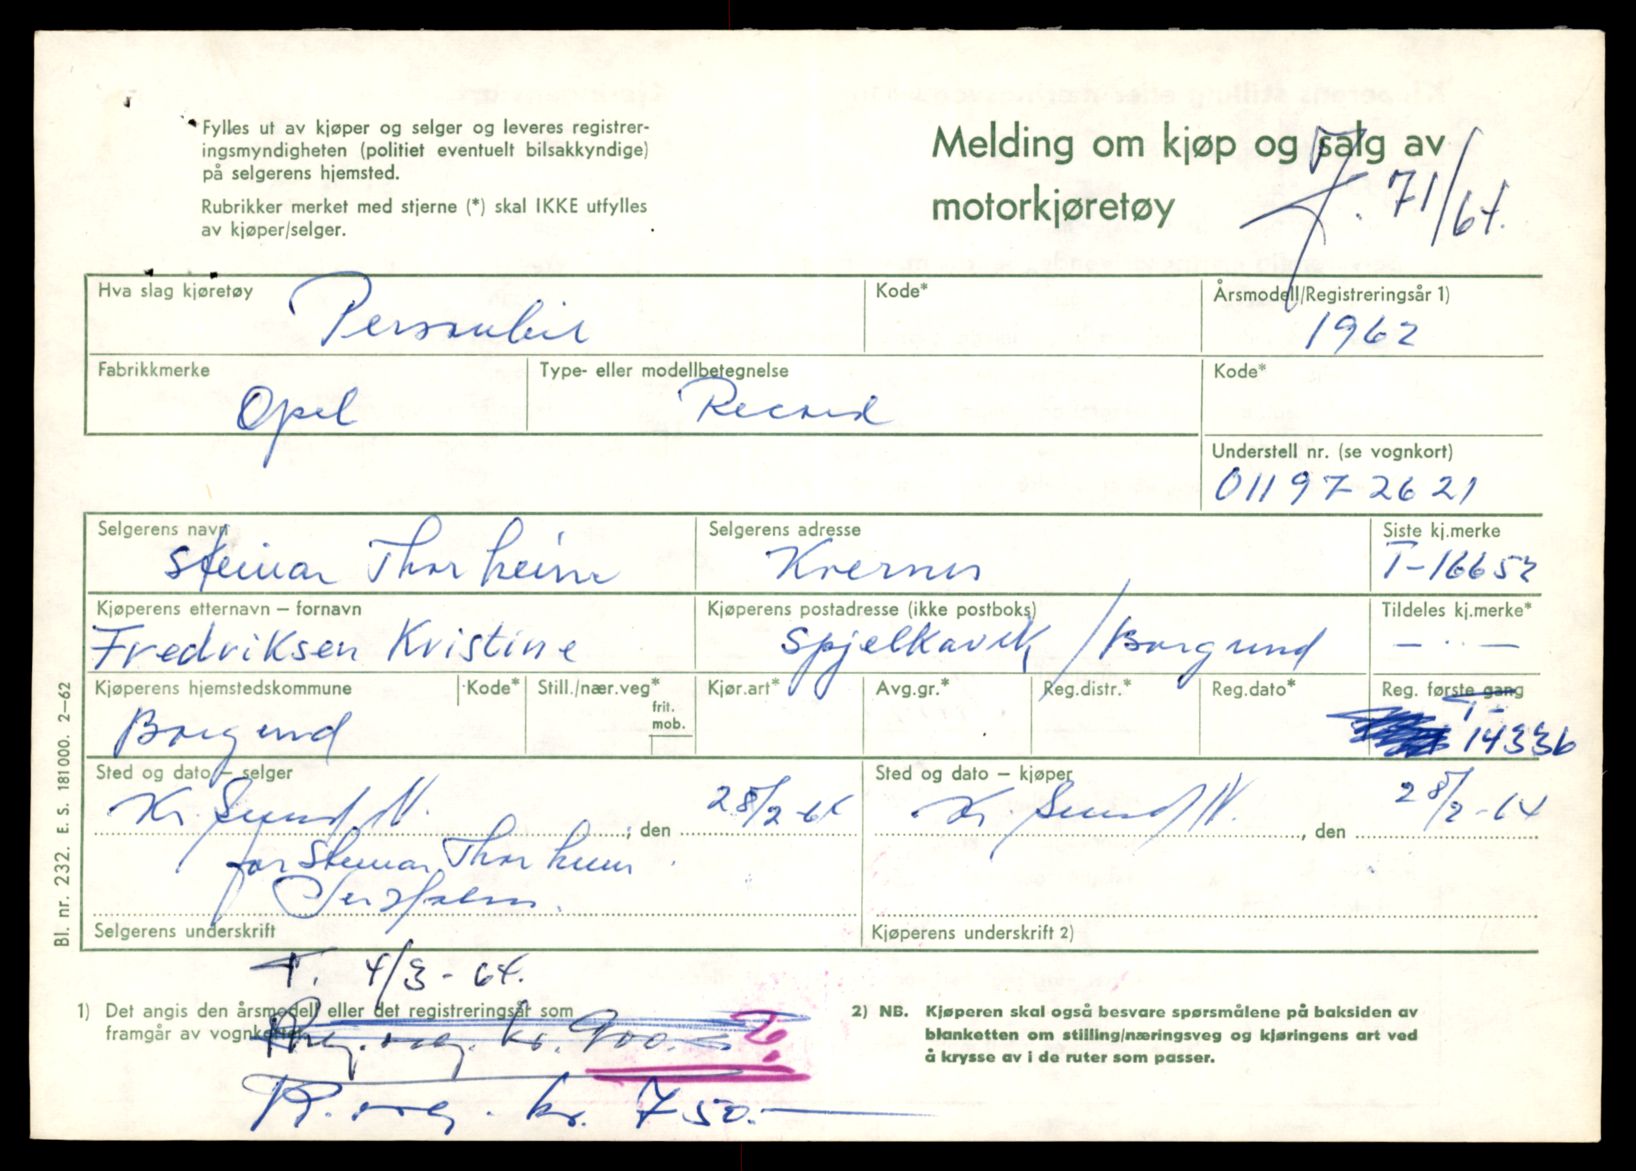 Fylles ut av kjøper og selger og leveres registrer-
ingsmyndigheten (politiet eventuelt bilsakkyndige)
på selgerens hjemsted.
Rubrikker merket med stjerne (*) skal IKKE utfylles
av kjøper/selger.
Melding om kjøp og salg av
motorkjøretøy
J. 71/64.
Hva slag kjøretøy
Personbil
Kode*
Årsmodell/Registreringsår 1)
1962
Fabrikkmerke
Opel
Type- eller modellbetegnelse
Record
Kode*
Understell nr. (se vognkort)
01197 2621
Selgerens navn
Steinar Thorheim
Selgerens adresse
Kvernes
Siste kj.merke
T-16652
Kjøperens etternavn – fornavn
Fredriksen Kristine
Kjøperens postadresse (ikke postboks)
Spjelkavik / Borgund
Tildeles kj.merke*
— · —
Kjøperens hjemstedskommune
Borgund
Kode*
Still./nær.veg*
frit.
mob.
Kjør.art*
Avg.gr.*
Reg.distr.*
Reg.dato*
Reg. første gang
T-
14336
Sted og dato – selger
Kr. Sund N. , den 28/2-64
Sted og dato – kjøper
Kr. Sund N. , den 28/2-64
for Steinar Thorheim
Selgerens underskrift
Kjøperens underskrift 2)
T. 4/3-64.
1) Det angis den årsmodell eller det registreringsår som
framgår av vognkortet.
kr. 900.-
kr. 750.-
2) NB. Kjøperen skal også besvare spørsmålene på baksiden av
blanketten om stilling/næringsveg og kjøringens art ved
å krysse av i de ruter som passer.
Bl. nr. 232. E. S. 181000. 2–62